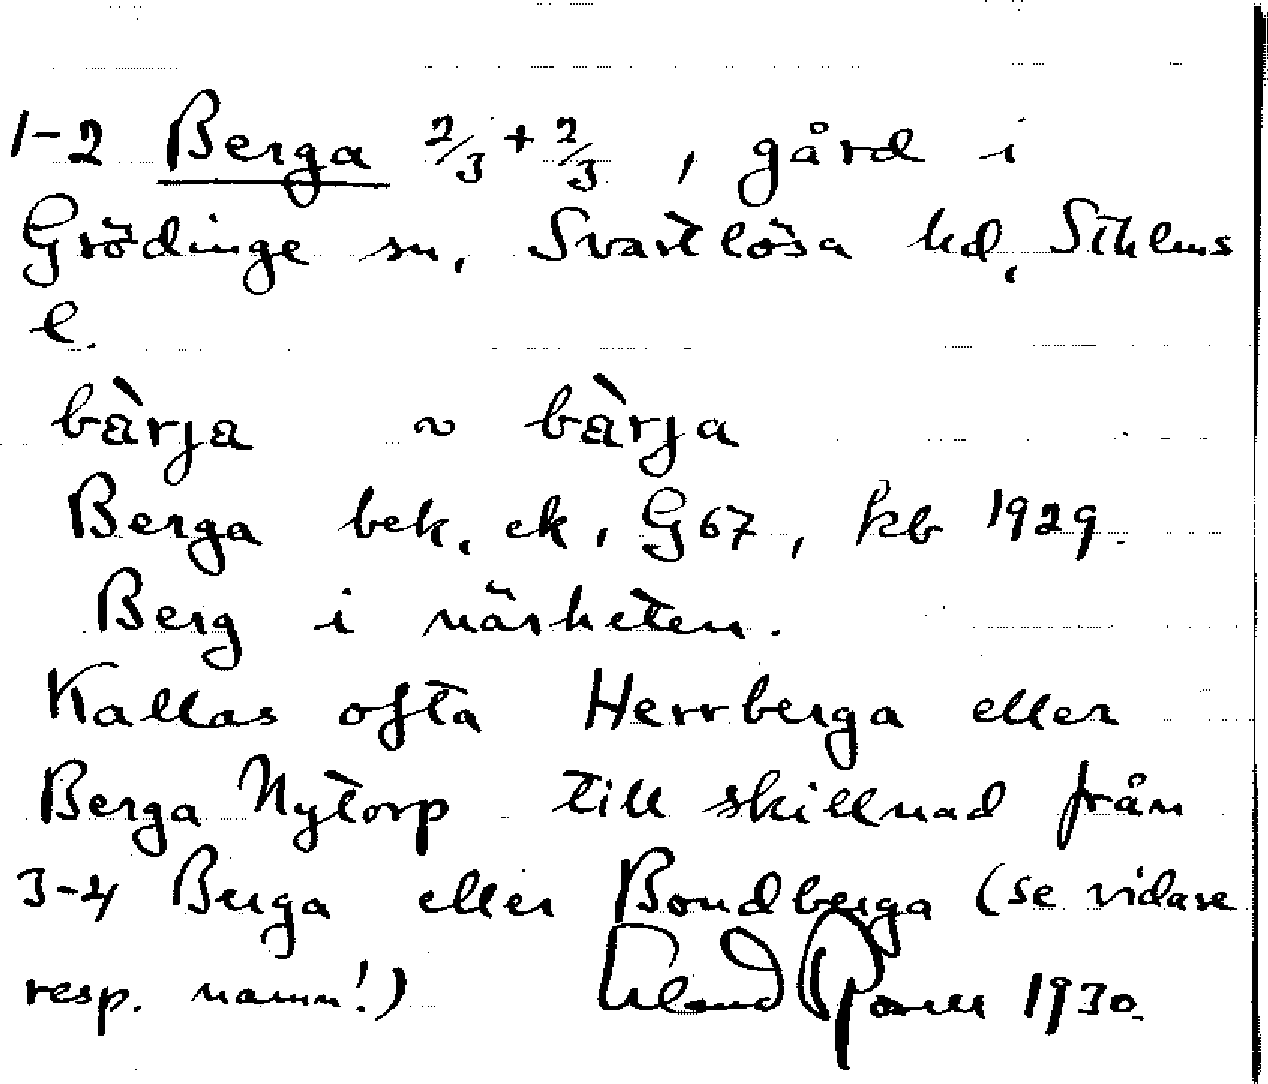 1-2 Berga 2/3 + 2/3, gård i
Grödinge sn, Svartlösa hd, Sthlms
l.
bàrja ~ bàrja
Berga bek. ek, G67, kb 1929.
Berg i närheten.
Kallas ofta Herrberga eller
Berga Nytorp till skillnad från
3-4 Berga eller Bondberga (se vidare
resp. namn!) 1930.